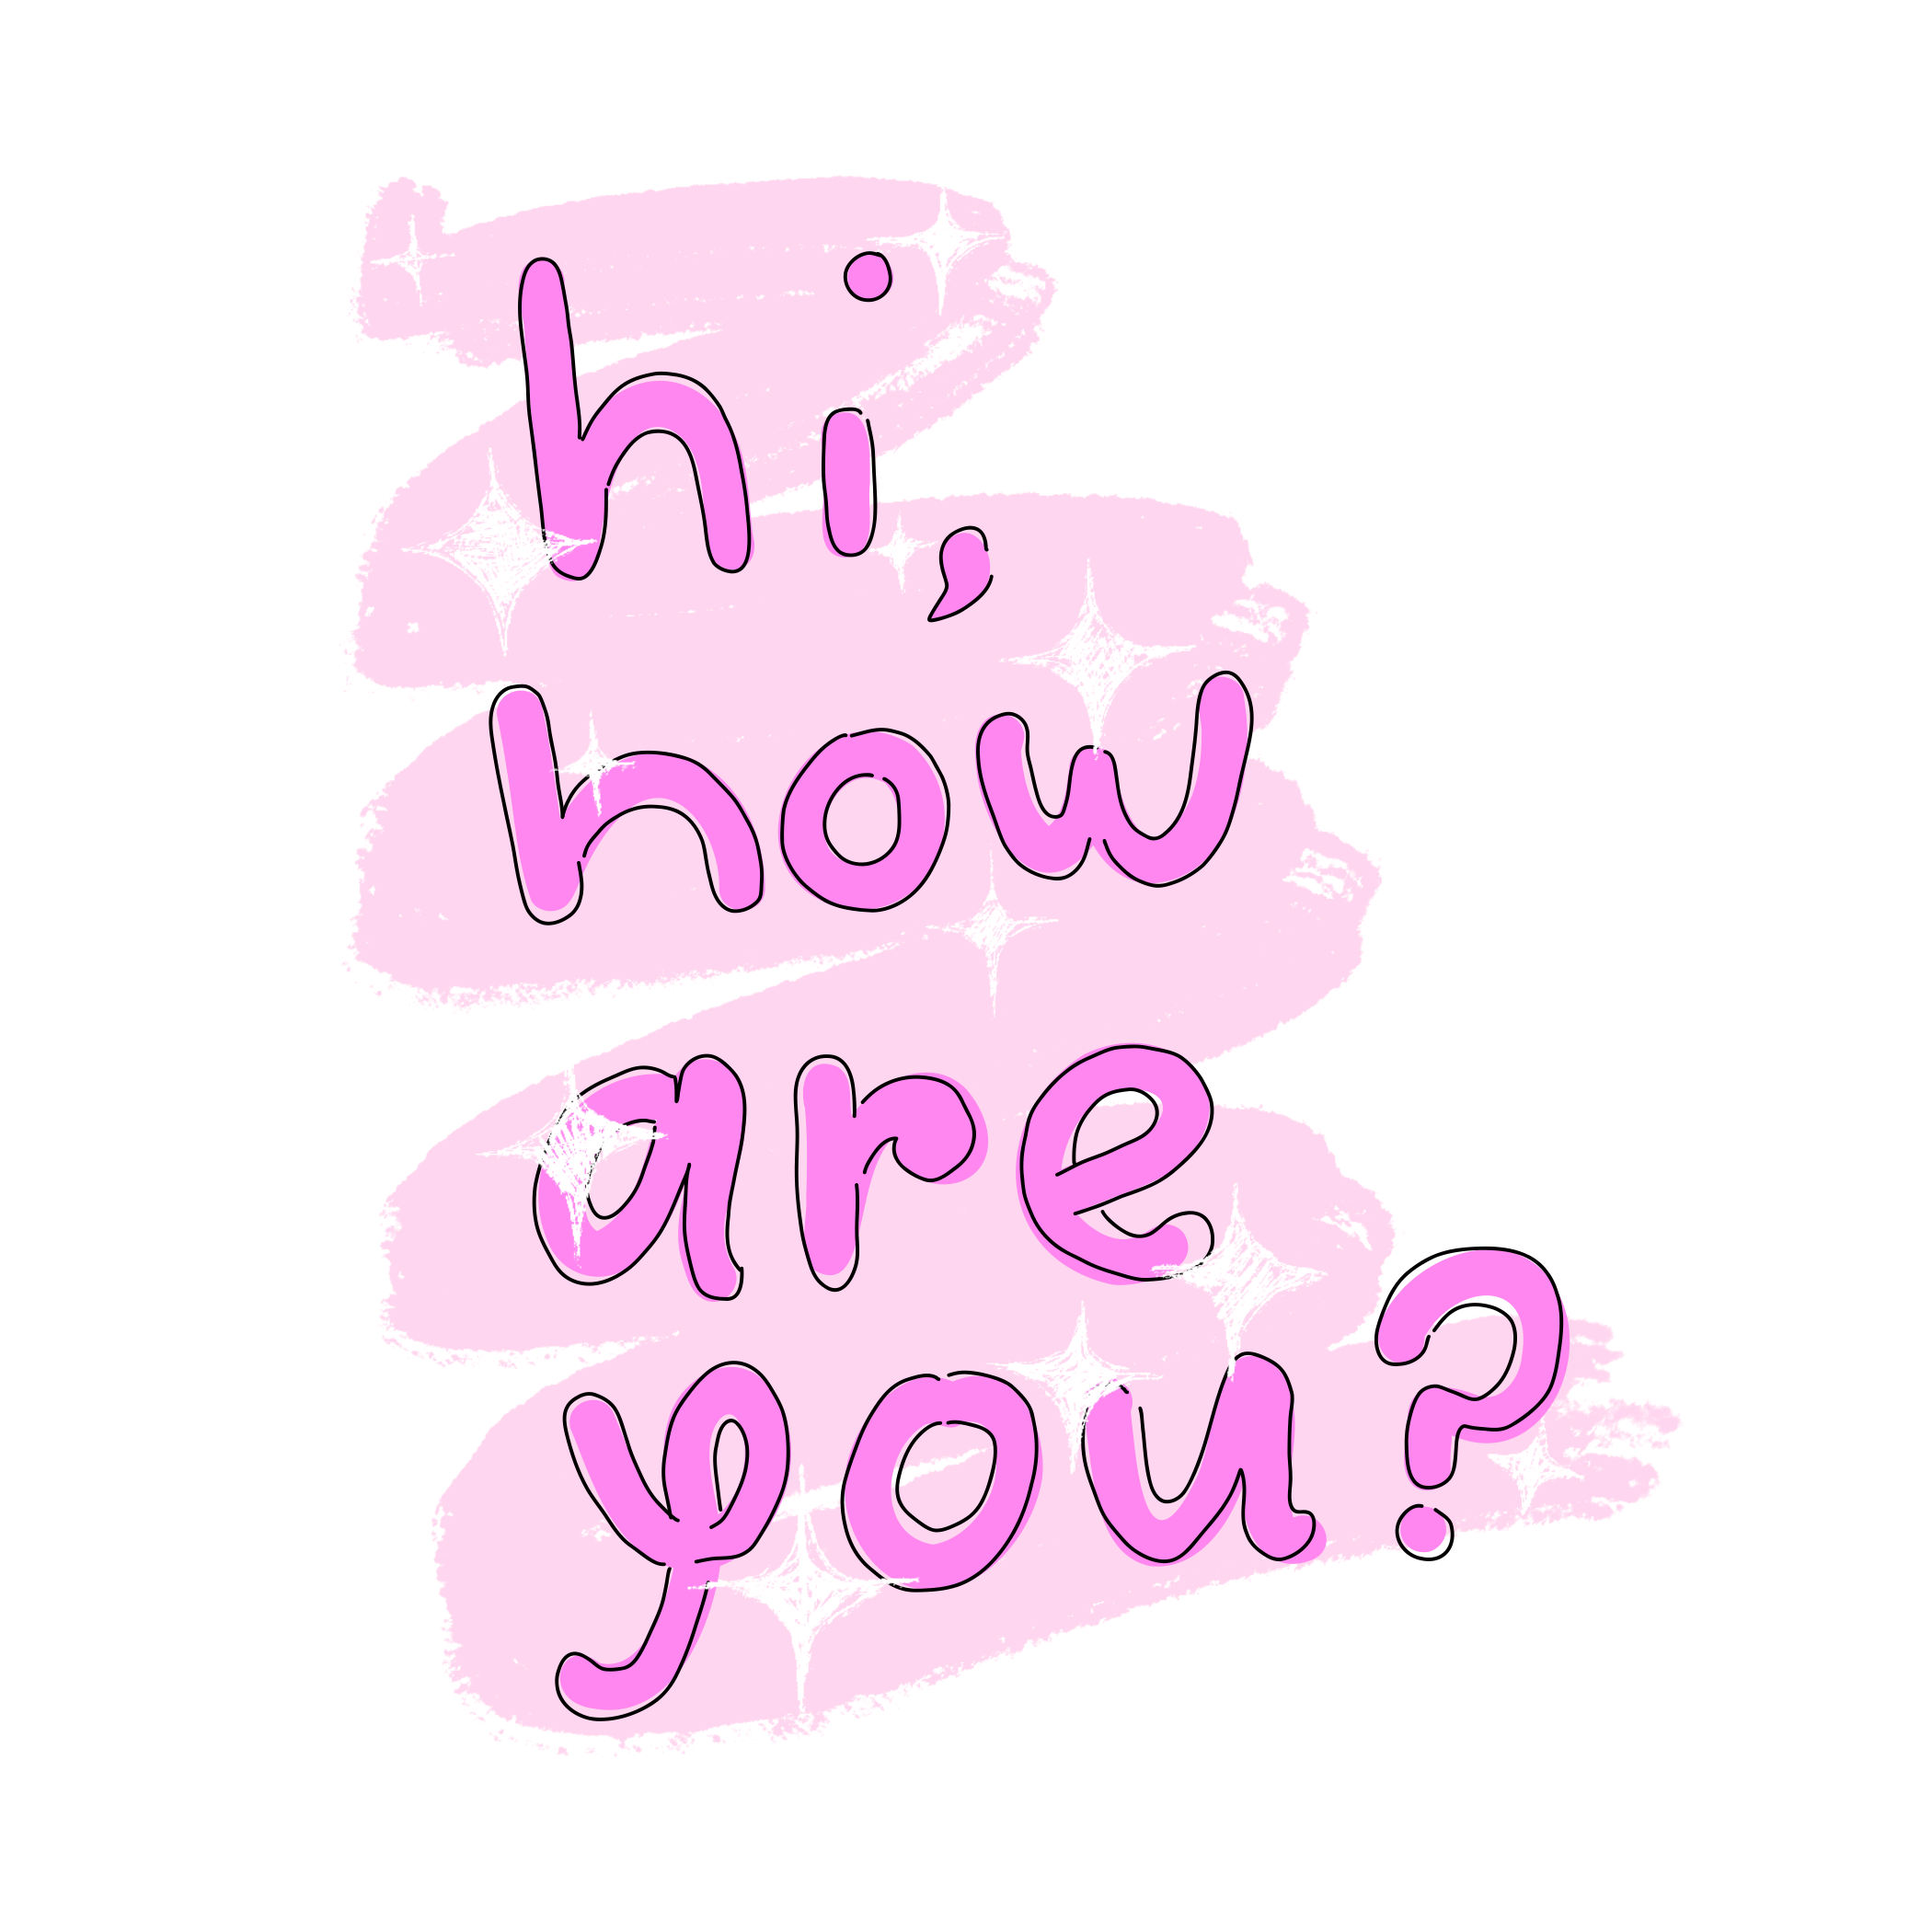 hi,
how
are
you?